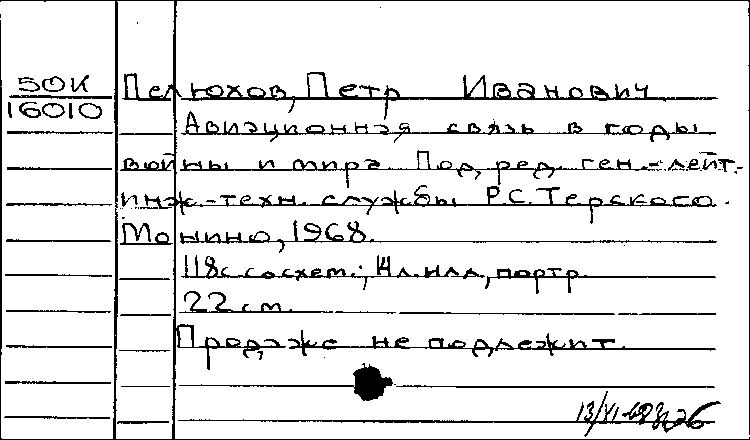 50К Пелюхов, Петр Иванович
16010
Авиационная связь в годы
войны и мира. Под ред. ген.-лейт.
инж.-техн. службы Р.С. Терского.
Монино, 1968.
118с. со схем.; 14 л. илл., портр.
22 см.
Продаже не подлежит.
13/XI-68